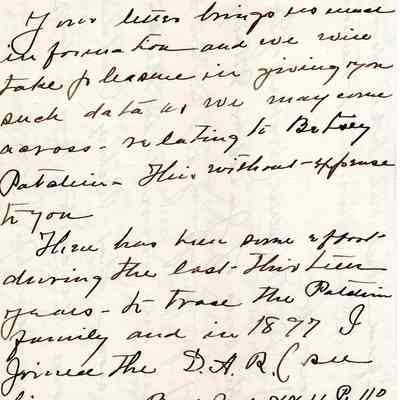 Your letter brings so much
information and we will
take pleasure in giving you
such data as we may come
across - relating to Betsey
Patchin - This without expense
to you
There has been some effort
during the last thirteen
years - to trace the Patchin
family and in 1897 I
Joined the D.A.R. (see